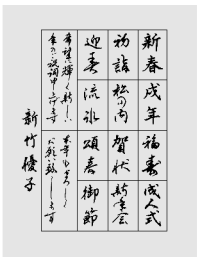 新春 戌年 福寿 成人式
初詣 松の内 賀状 新年会
迎春 流氷 頌春 御節
希望に輝く新しい
年のご祝詞申し上げます
本年もよろしく
お願い致します
新竹優子